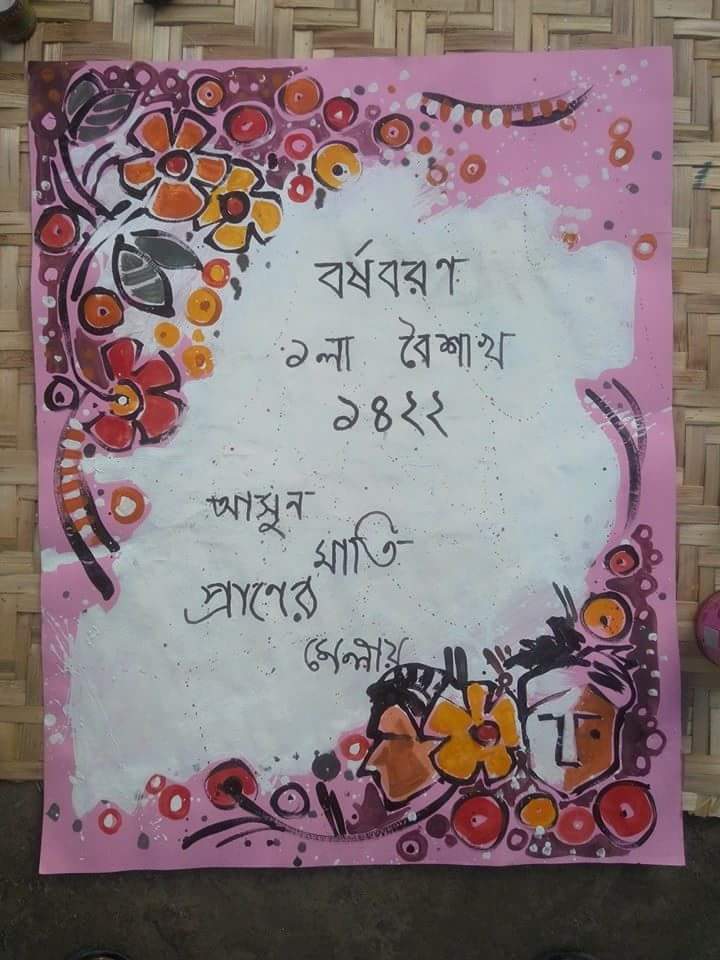 বর্ষবরণ
১লা বৈশাখ
১৪২২
আসুন
মাতি
প্রাণের
মেলায়